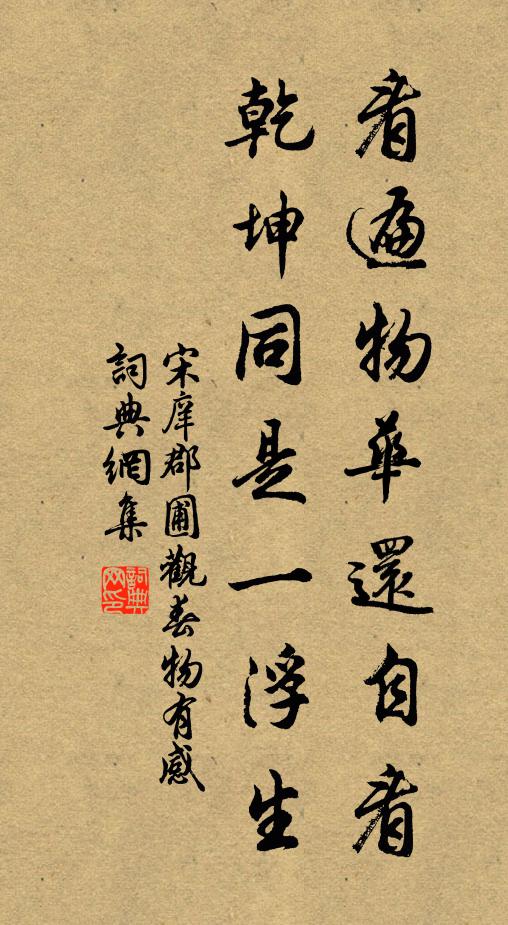 看遍物華還自看
乾坤同是一浮生
宋庠郡圃觀春物有感
詞典網集
詞典
网印